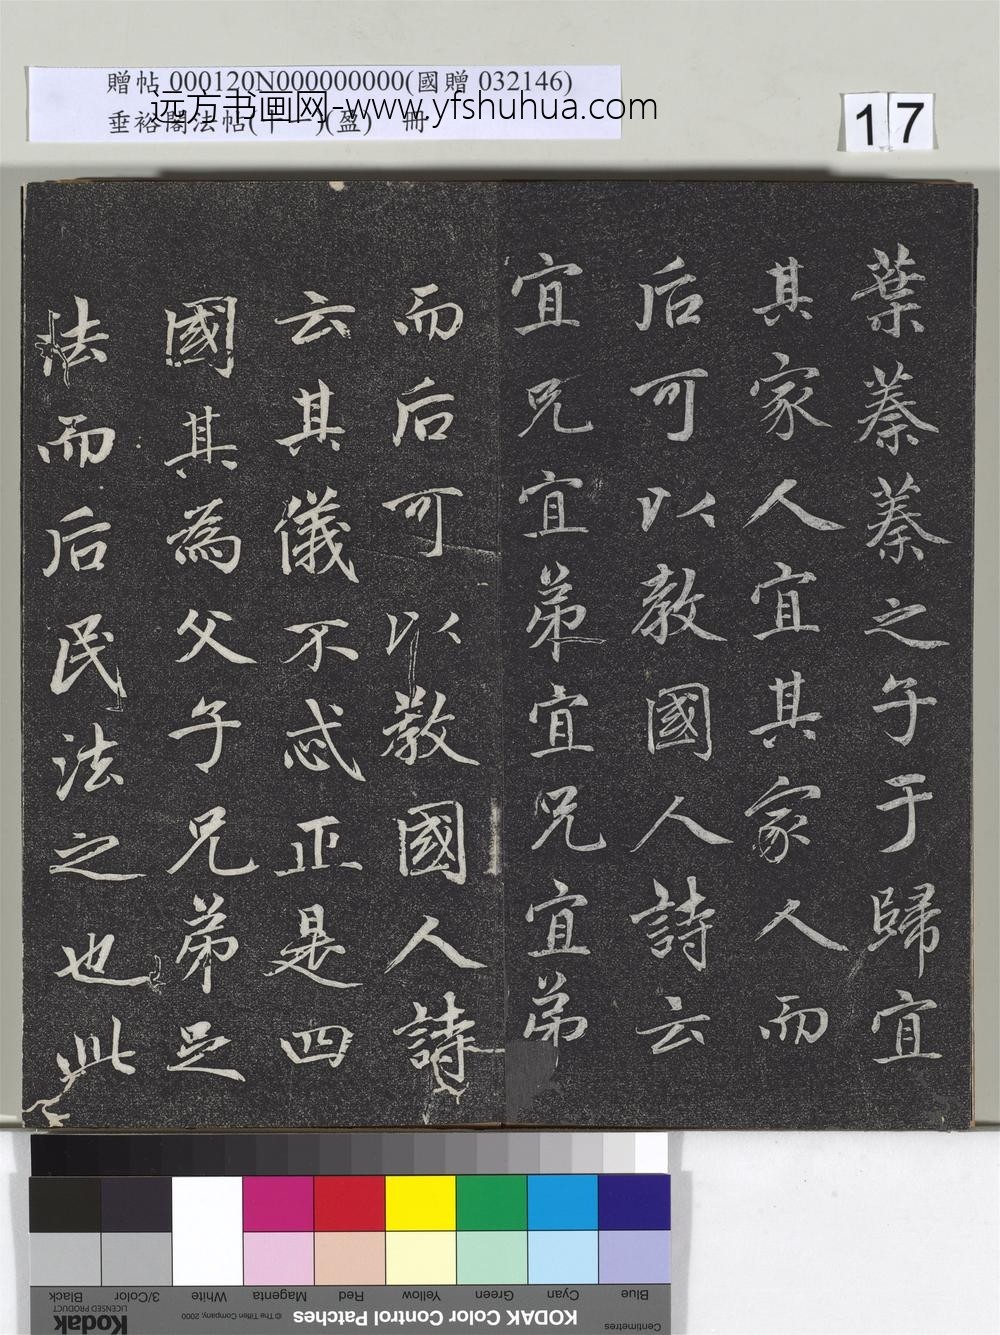 贈帖 000120N000000000(國贈 032146)
远方书画网-www.yfshuhua.com
垂裕閣法帖 (盈) 冊
17
葉蓁蓁之子于歸宜
其家人宜其家人而
后可以教國人詩云
宜兄宜弟宜兄宜弟
而后可以教國人詩
云其儀不忒正是四
國其為父子兄弟足
法而后民法之也此
Blue Cyan Green Yellow Red Magenta White 3/Color Black
Centimetres KODAK Color Control Patches © The Tiffen Company, 2000 Kodak LICENSED PRODUCT